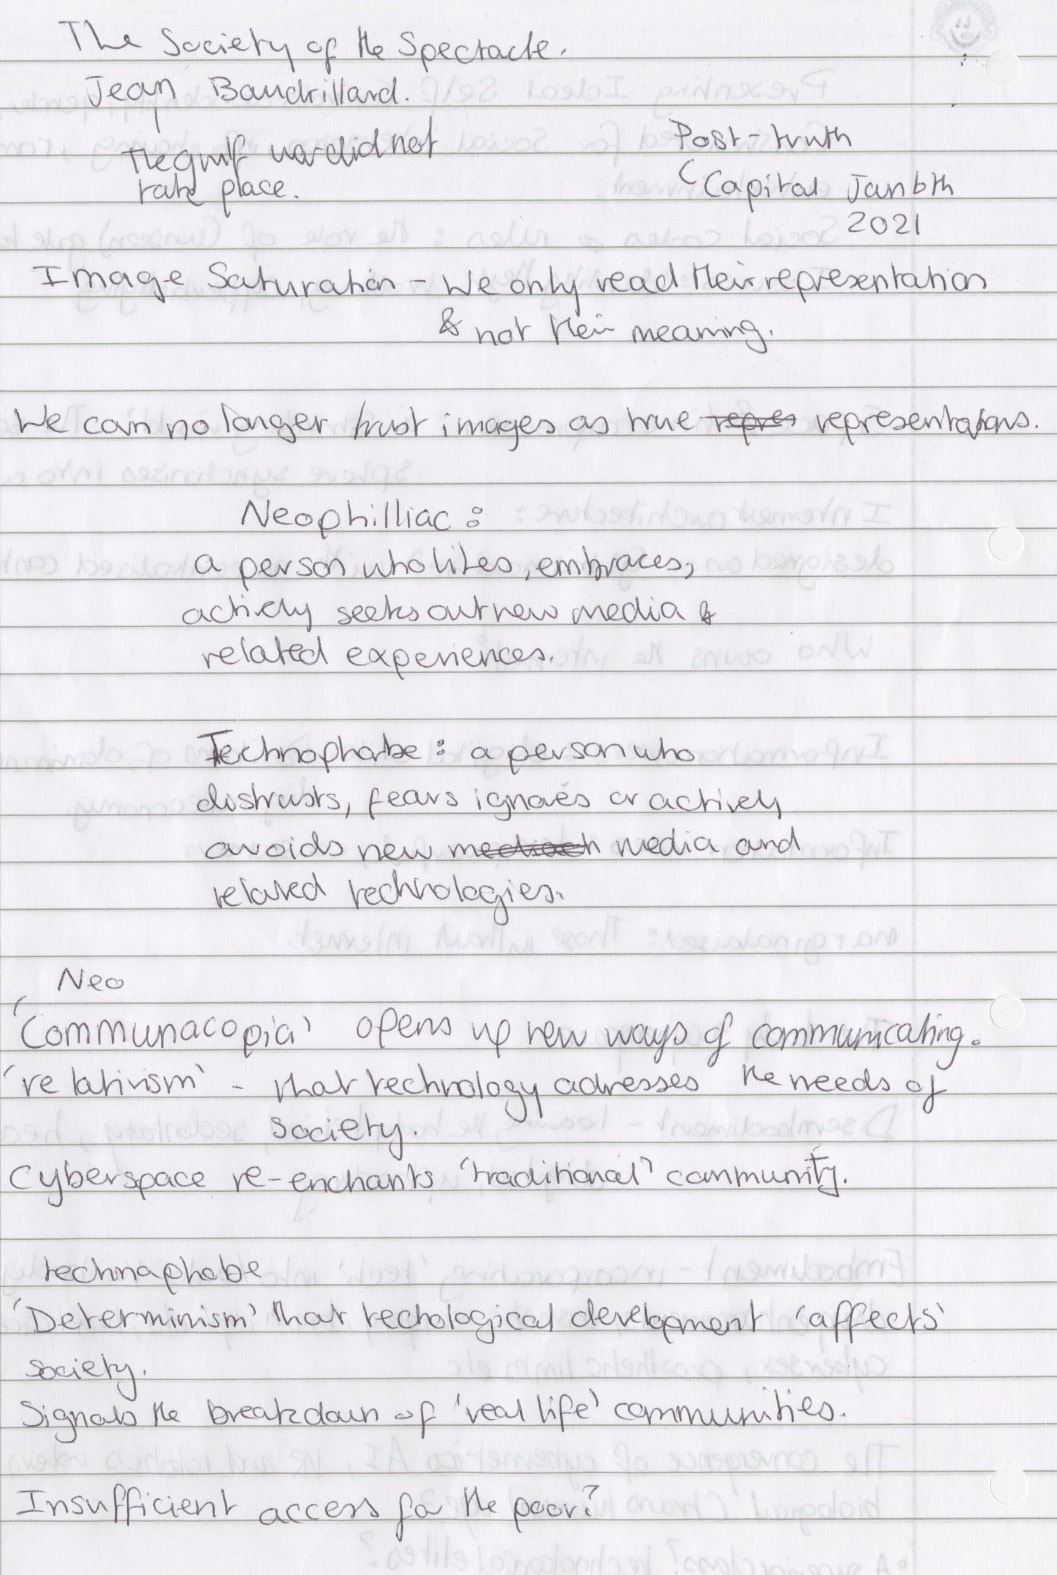 The Society of the Spectacle.
Jean Baudrillard.
The gulf war did not
take place.
Post-truth
Capital Jan 6th
2021
Image Saturation - We only read their representation
& not their meaning.
We can no longer trust images as true repres representations.
Neophilliac:
a person who likes, embraces,
actively seeks out new media &
related experiences.
Technophobe: a person who
distrusts, fears ignores or actively
avoids new media and
related technologies.
Neo
'Communacopia' opens up new ways of communicating.
'relativism' - that technology adresses the needs of
society.
Cyberspace re-enchants 'traditional' community.
technophobe
'Determinism' that techological development 'affects'
society.
Signals the breakdown of 'real life' communities.
Insufficient access for the poor?